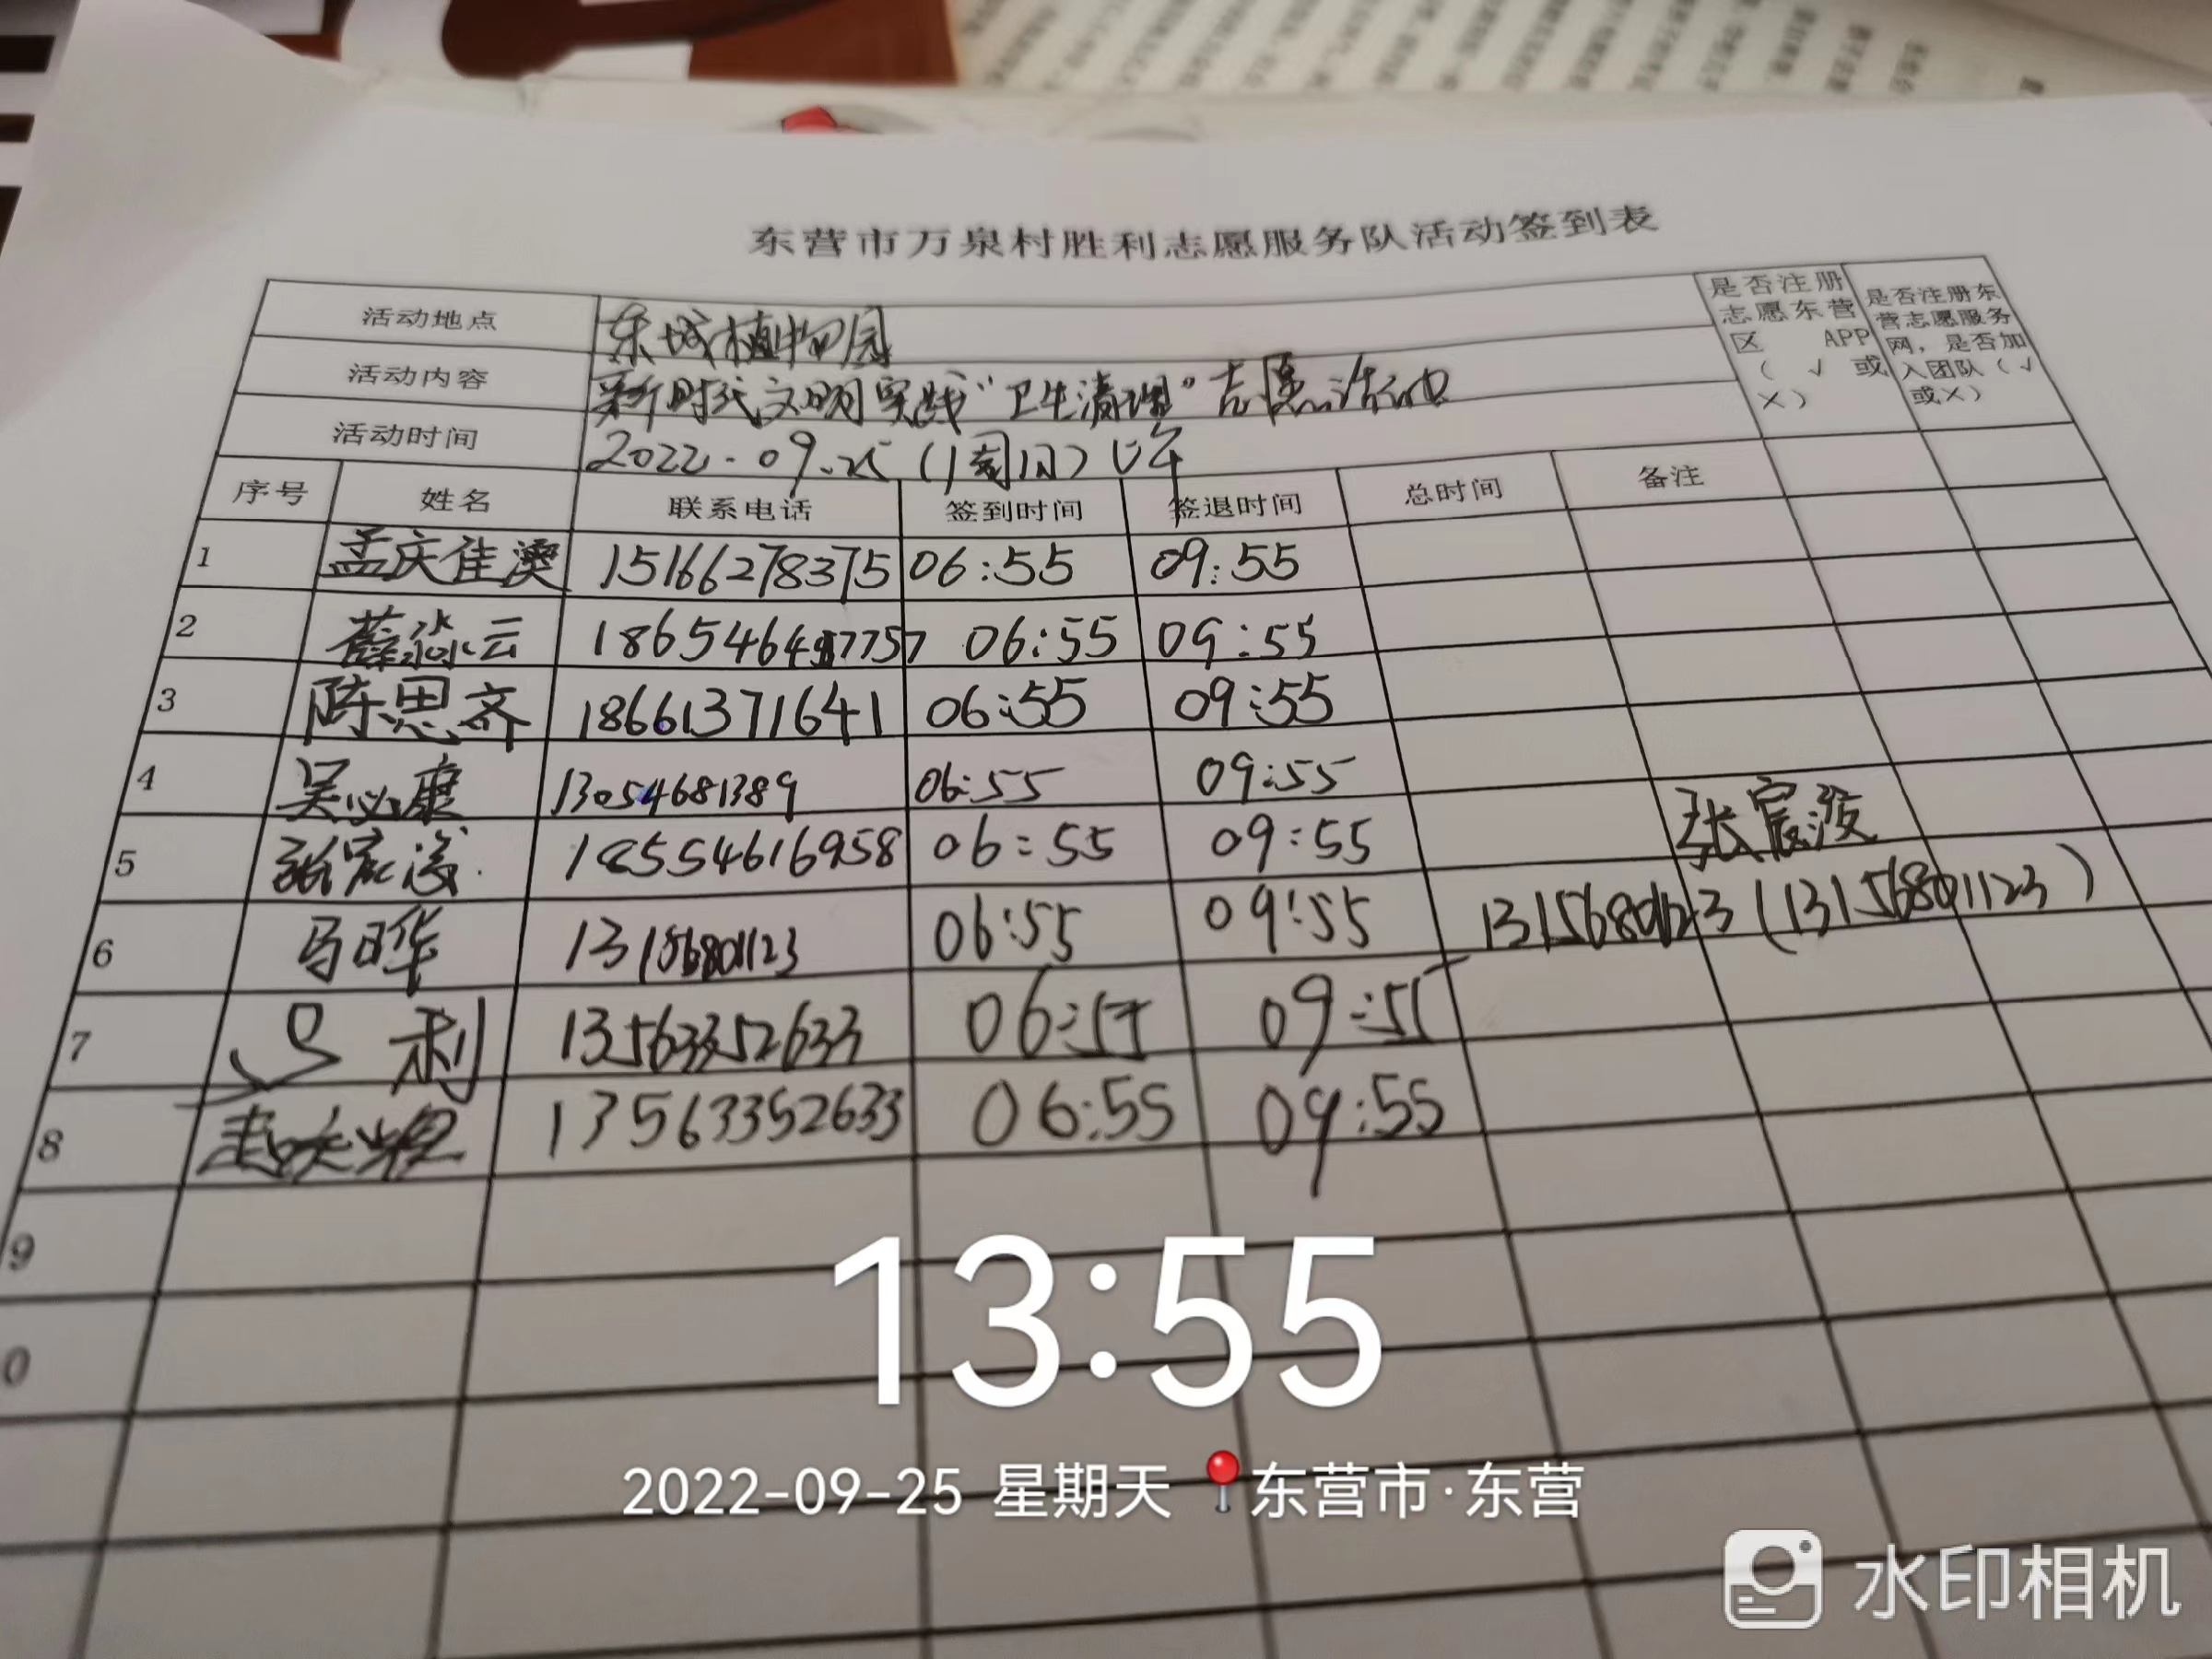 东营市万泉村胜利志愿服务队活动签到表
活动地点 东城植物园
活动内容 新时代文明实践“卫生清理”志愿活动
活动时间 2022.09.25（周日）上午
是否注册志愿东营区 APP（√或×）
是否注册东营志愿服务网，是否加入团队（√或×）
序号 姓名 联系电话 签到时间 签退时间 总时间 备注
1 孟庆佳 15166278375 06:55 09:55
2 薛淼云 06:55 09:55
3 陈思齐 18661371641 06:55 09:55
4 吴必康 13054681389 06:55 09:55
5 18554616958 06:55 09:55 张宸浚
6 马晔 13156801123 06:55 09:55 13156801123（13156801123）
7 利 13563352633 06:55 09:55
8 13563352633 06:55 09:55
9
0
13:55
2022-09-25 星期天 东营市·东营
水印相机